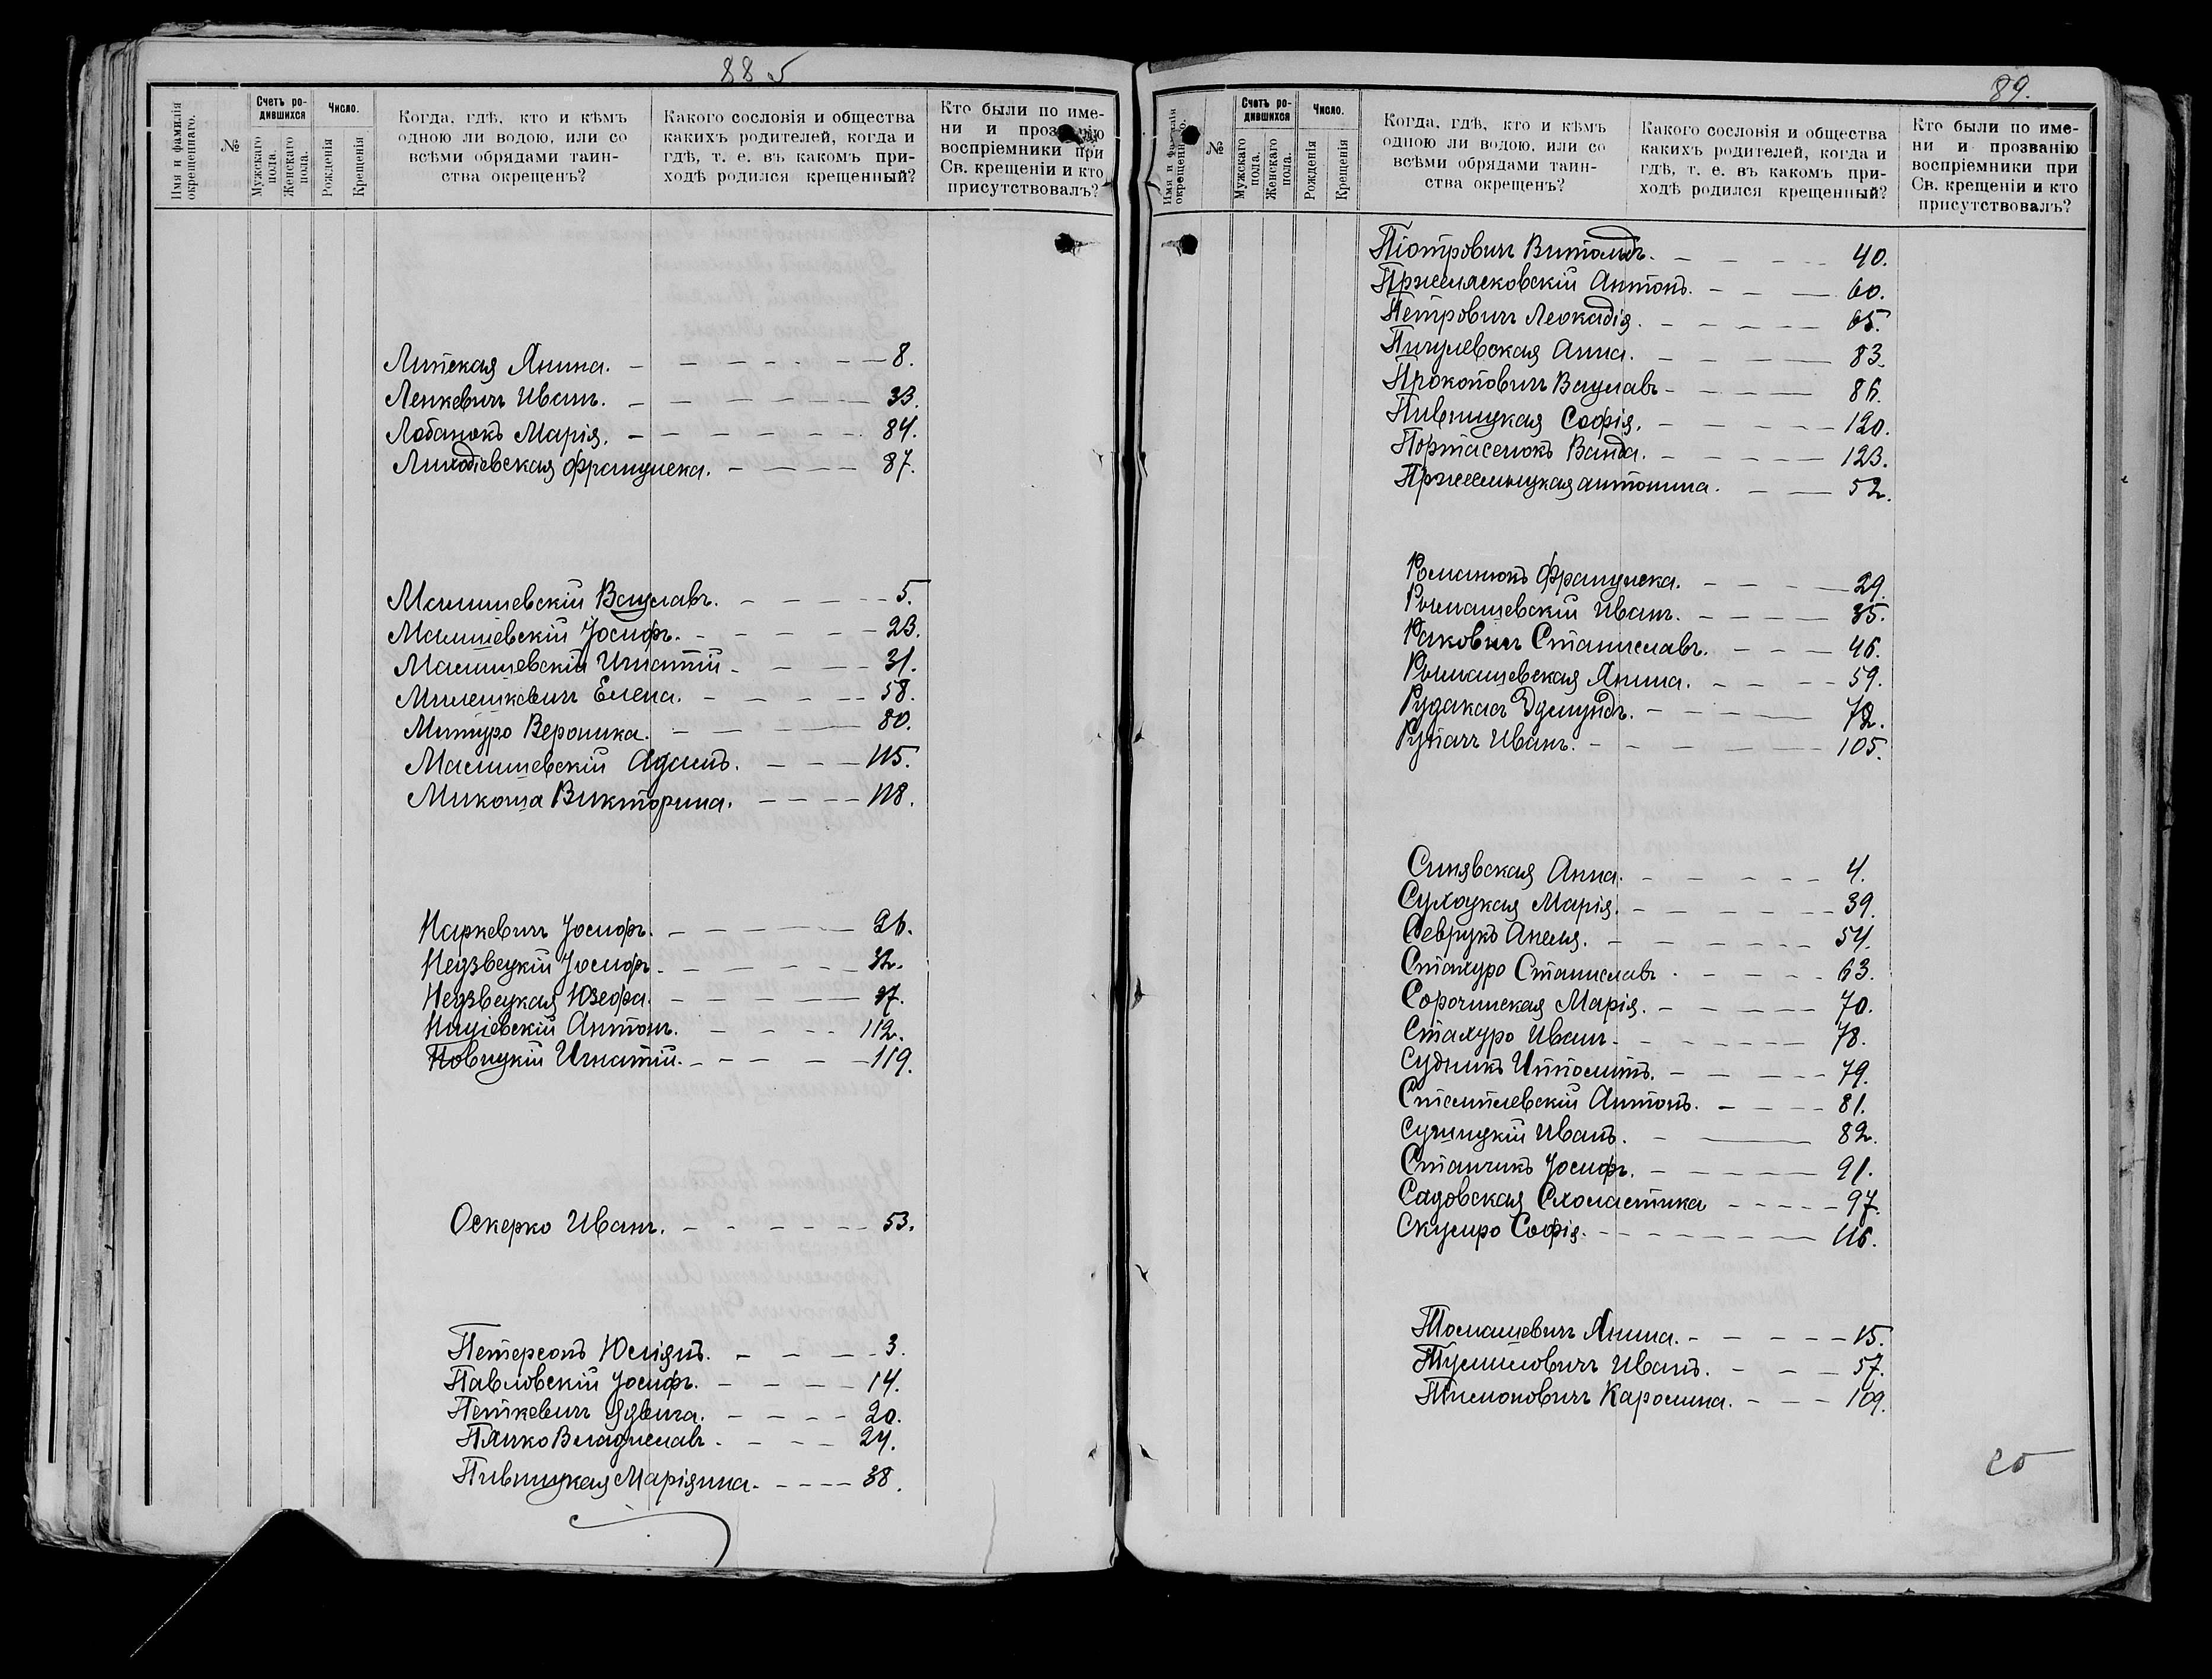 88 5
Имя и фамилія
окрещеннаго.
№
Счетъ ро-
дившихся
Мужскаго
пола.
Женскаго
пола.
Число.
Рожденія
Крещенія
Когда, гдѣ, кто и кѣмъ
одною ли водою, или со
всѣми обрядами таин-
ства окрещенъ?
Какого сословія и общества
какихъ родителей, когда и
гдѣ, т. е. въ какомъ при-
ходѣ родился крещенный?
Кто были по име-
ни и прозванію
воспріемники при
Св. крещеніи и кто
присутствовалъ?
Липская Янина. - - - - - - 8.
Ленкевичъ Иванъ. - - - - - - 33.
Лобанокъ Марія. - - - - - - 84.
Лиходіевская Франциска. - - - - 87.
Малишевскій Вацлавъ. - - - - - 5.
Малишевскій Іосифъ. - - - - - 23.
Малишевскій Игнатій - - - - - 31.
Милешкевичъ Елена. - - - - - 58.
Митуро Вероника. - - - - 80.
Малишевскій Адамъ. - - - 115.
Микоша Викторина. - - - - 118.
Наркевичъ Іосифъ. - - - - - 26.
Недзвецкій Іосифъ - - - - - - 32.
Недзвецкая Юзефа. - - - - - 37.
Нацѣевскій Антонъ. - - - - 112.
Новицкій Игнатій. - - - - - 119.
Оскерко Иванъ. - - - - - - 53.
Петерсонъ Юліянъ. - - - - 3.
Павловскій Іосифъ. - - - - 14.
Петкевичъ Ядвига. - - - - 20.
Пянко Владиславъ. - - - - 24.
Пивницкая Маріянна. - - - - 38.
89.
Имя и фамилія
окрещеннаго.
№
Счетъ ро-
дившихся
Мужскаго
пола.
Женскаго
пола.
Число.
Рожденія
Крещенія
Когда, гдѣ, кто и кѣмъ
одною ли водою, или со
всѣми обрядами таин-
ства окрещенъ?
Какого сословія и общества
какихъ родителей, когда и
гдѣ, т. е. въ какомъ при-
ходѣ родился крещенный?
Кто были по име-
ни и прозванію
воспріемники при
Св. крещеніи и кто
присутствовалъ?
Піотровичъ Витольдъ. - - - - - 40.
Пржеласковскій Антонъ. - - - 60.
Петровичъ Леокадія. - - - - - 65.
Пигулевская Анна. - - - - 83.
Прокоповичъ Вацлавъ - - - - - 86.
Пивницкая Софія. - - - - - 120.
Портасенокъ Ванда. - - - - - 123.
Антонина. - - 52.
Романюкъ Франциска. - - - - 29.
Рымашевскій Иванъ. - - - - - 35.
Раковичъ Станиславъ. - - - 46.
Рымашевская Янина. - - - - 59.
Рудакасъ Эдмундъ. - - - - - 72.
Рупачъ Иванъ. - - - - - - 105.
Синявская Анна. - - - - - - 4.
Сухоцкая Марія. - - - - - - 39.
Севрукъ Анеля. - - - - - - 54.
Стахуро Станиславъ. - - - - 63.
Сорочинская Марія. - - - - - 70.
Стахуро Иванъ. - - - - - - 78.
Судникъ Ипполитъ. - - - - - 79.
Стемпневскій Антонъ. - - - - 81.
Иванъ. - - 82.
Станчикъ Іосифъ. - - - - - 91.
Садовская Схоластика - - - - - 97.
Скуміро Софія. - - - - - - - - 116.
Томашевичъ Янина. - - - - - 15.
Тумиловичъ Иванъ. - - - 57.
Тимоновичъ Каролина. - - - 109.